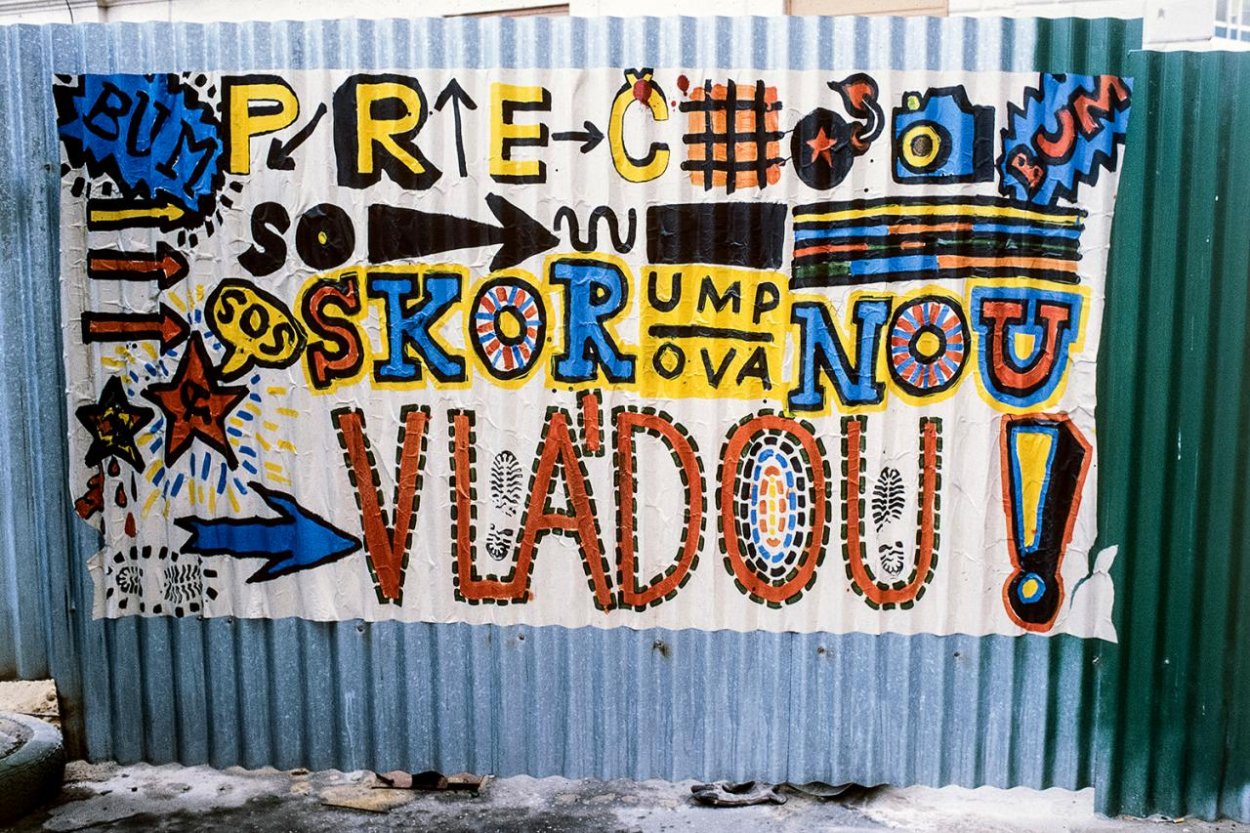 BUM PREČ BUM
SO
SOS SKORUMPOVANOU
VLÁDOU!